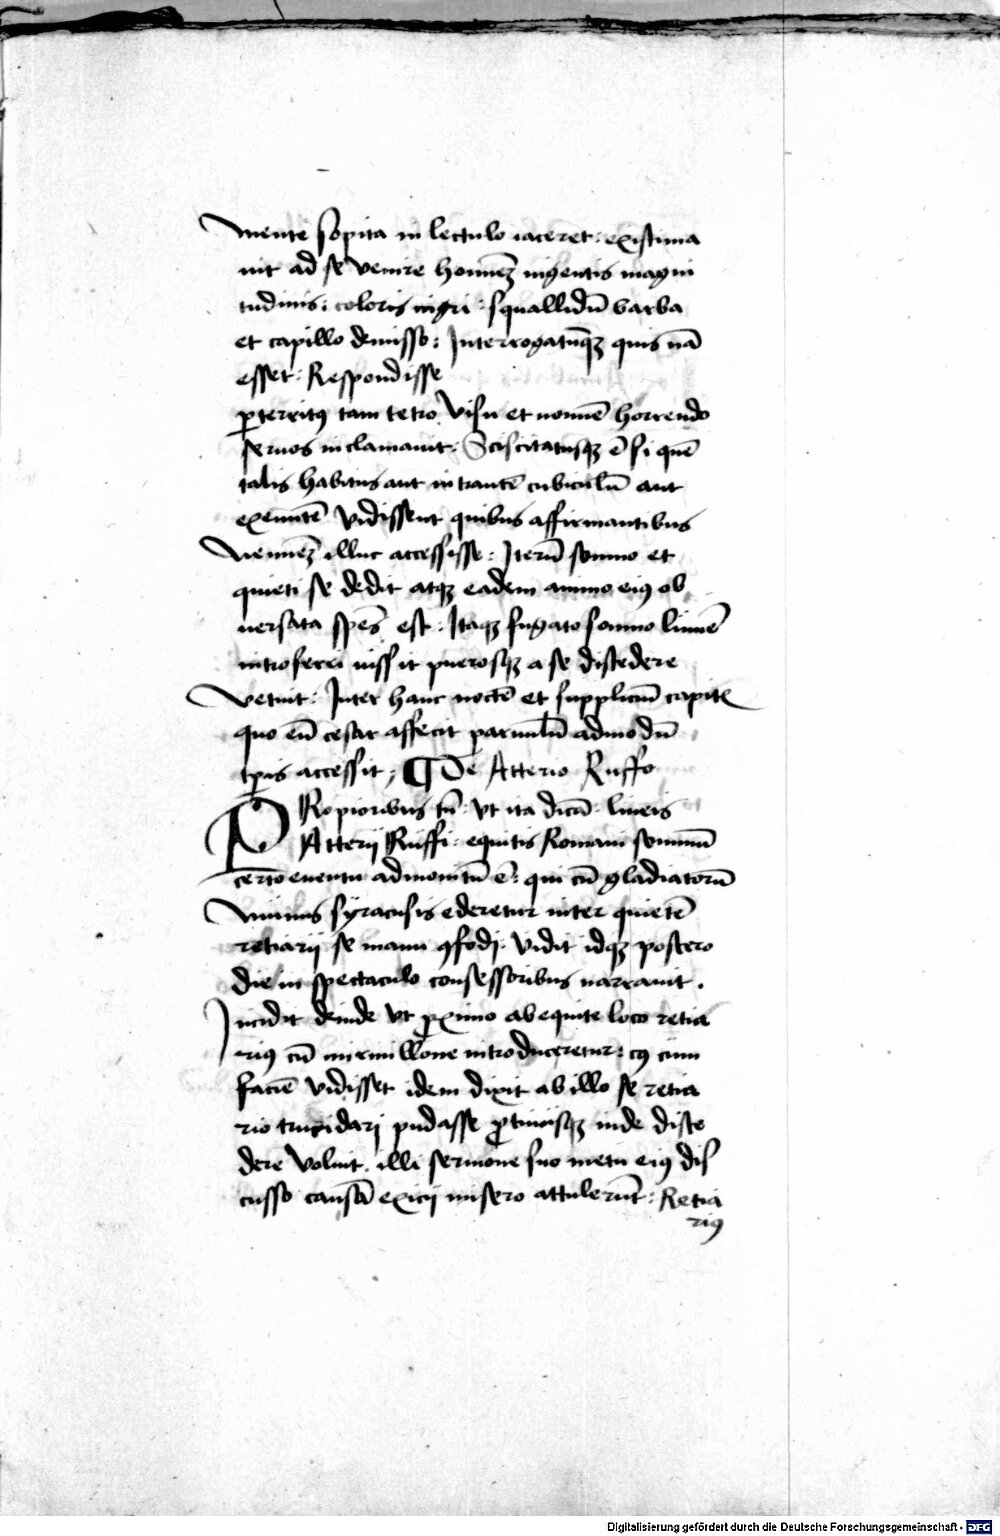 mente sopita in lectulo iaceret: existima
uit ad se venire homineȝ ingentis magni
tudinis: coloris nigri: squallidū barba
et capillo demisso: Interrogatūqȝ quis nā
esset: Respondisse
ꝑterritꝰ tam tetro visu et nomīe horrendo
seruos inclamauit: Sciscitatusqȝ ē si quē
talis habitus aut intrantē cubiculū aut
exeuntē vidissent quibus affirmantibus
Nemineȝ illuc accessisse: Iterū somno et
quieti se dedit atqȝ eadem animo eiꝰ ob
uersata spēs est. Itaqȝ fugato somno lumē
introferri iussit puerosqȝ a se discedere
vetuit: Inter hanc noctē et suppliciū capitꝭ
quo eū cesar affecit paruulū admodū
tꝑis accessit; ¶ De Atterio Ruffo
PRopioribus tn̄: vt ita dicā: lineis
Atterij Ruffi: equitis Romani somniū
certo euentu admonitū ē: qui cū gladiatorū
munus syracusis ederetur inter quietē
retiarij se manu ꝯfodj. vidit idqȝ postero
die in spectaculo consessoribus narrauit.
Incidit deinde vt ꝓximo ab equite loco retia
riꝰ cū mirmillone introduceretur: cꝰ cum
faciē vidisset idem dixit ab illo se retia
rio trucidarj putasse ꝓtinusqȝ inde disce
dere voluit. illi sermone suo metu eiꝰ dis
cusso causā exicij misero attulerūt: Retia
riꝰ
Digitalisierung gefördert durch die Deutsche Forschungsgemeinschaft - DFG